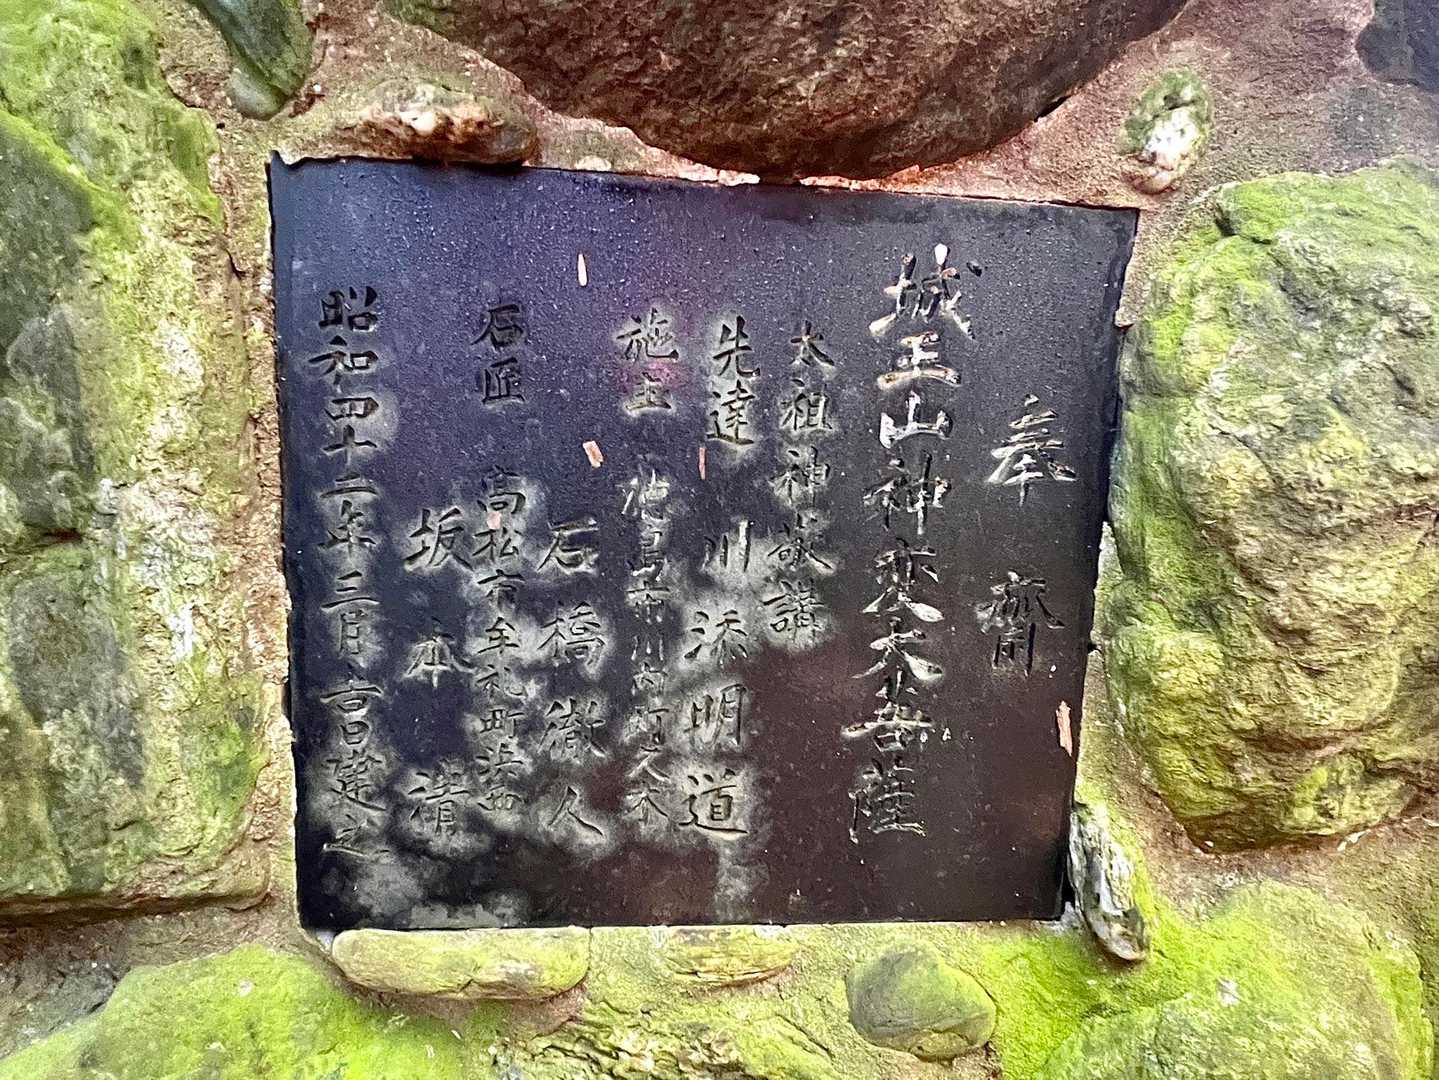 奉 齋
城王山神変大菩薩
太祖神敬講
先達 川添明道
施主 徳島市川内町久木
石橋徹人
石匠 高松市牟礼町浜西
坂本 清
昭和四十二年三月吉日建之